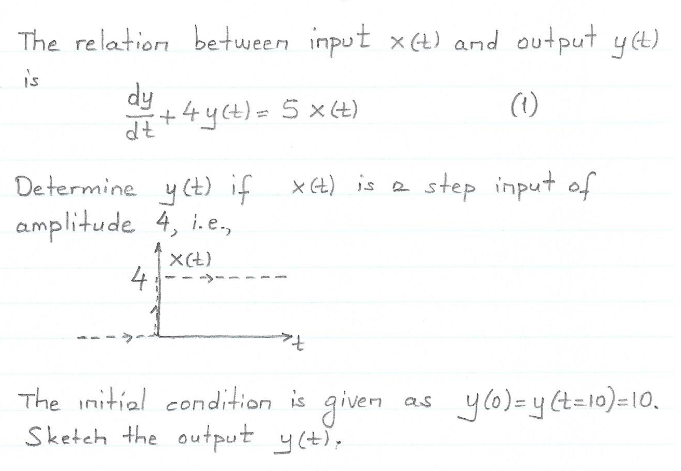 The relation between input x(t) and output y(t)
is
dy/dt + 4y(t) = 5x(t) (1)
Determine y(t) if x(t) is a step input of
amplitude 4, i.e.,
x(t)
4
t
The initial condition is given as y(0)=y(t=10)=10.
Sketch the output y(t).